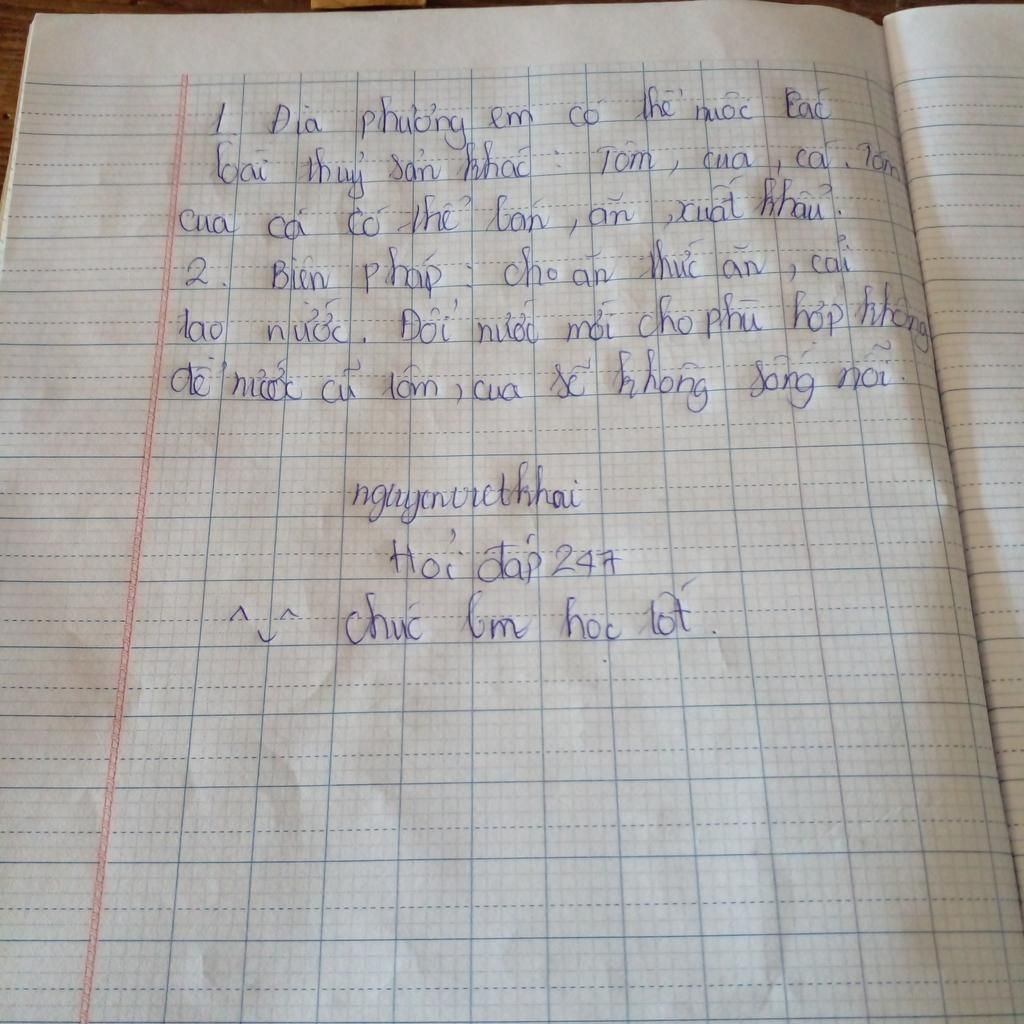 1. Địa phương em có thể nuôc các
loại thuỷ sản khác : Tôm, cua, cá. Tôm
cua cá có thể bán, ăn, xuất khẩu.
2. Biện pháp : cho ăn thức ăn, cải
tạo nước. Đổi nước mới cho phù hợp không
để nước cũ tôm, cua sẽ không sống nổi.
nguyenvietkhai
Hỏi đáp 247
^◡^ chúc em học tốt.